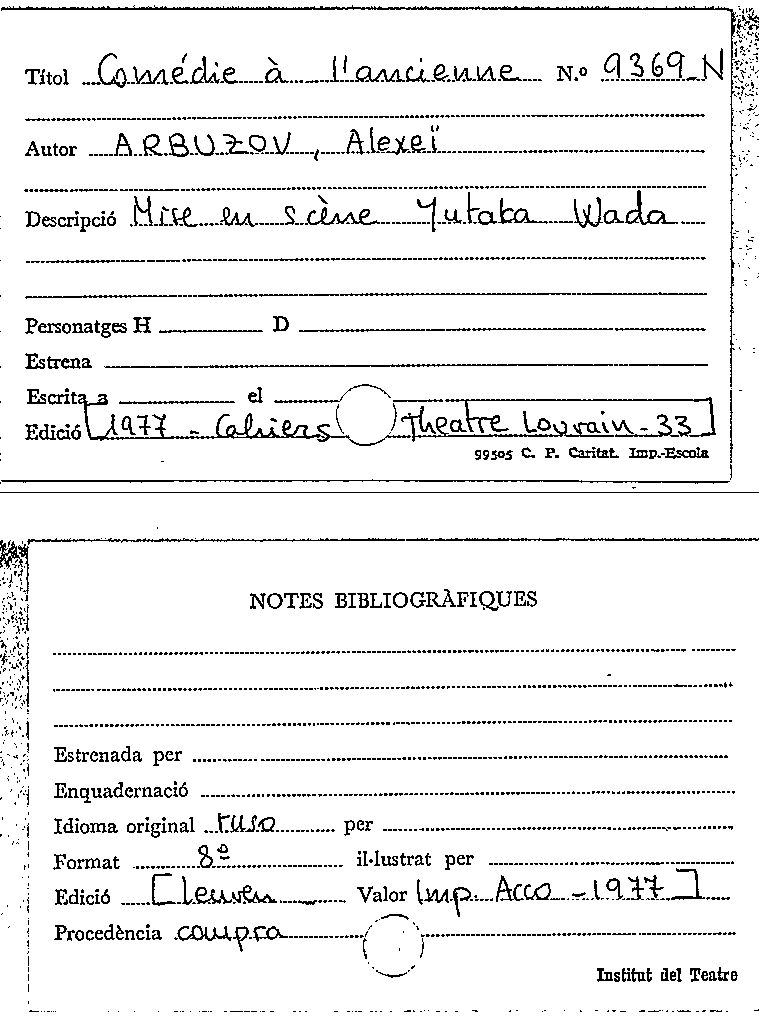 Títol Comédie à l'ancienne N.º 9369 N
Autor ARBUZOV, Alexeï
Descripció Mise en scène Yutaka Wada
Personatges H D
Estrena
Escrita a el
Edició [1977 - Cahiers Theatre Louvain - 33]
99505 C. P. Caritat. Imp.-Escola
NOTES BIBLIOGRÀFIQUES
Estrenada per
Enquadernació
Idioma original ruso per
Format 8º il·lustrat per
Edició [Leuven Valor Imp. Acco - 1977]
Procedència compra
Institut del Teatre